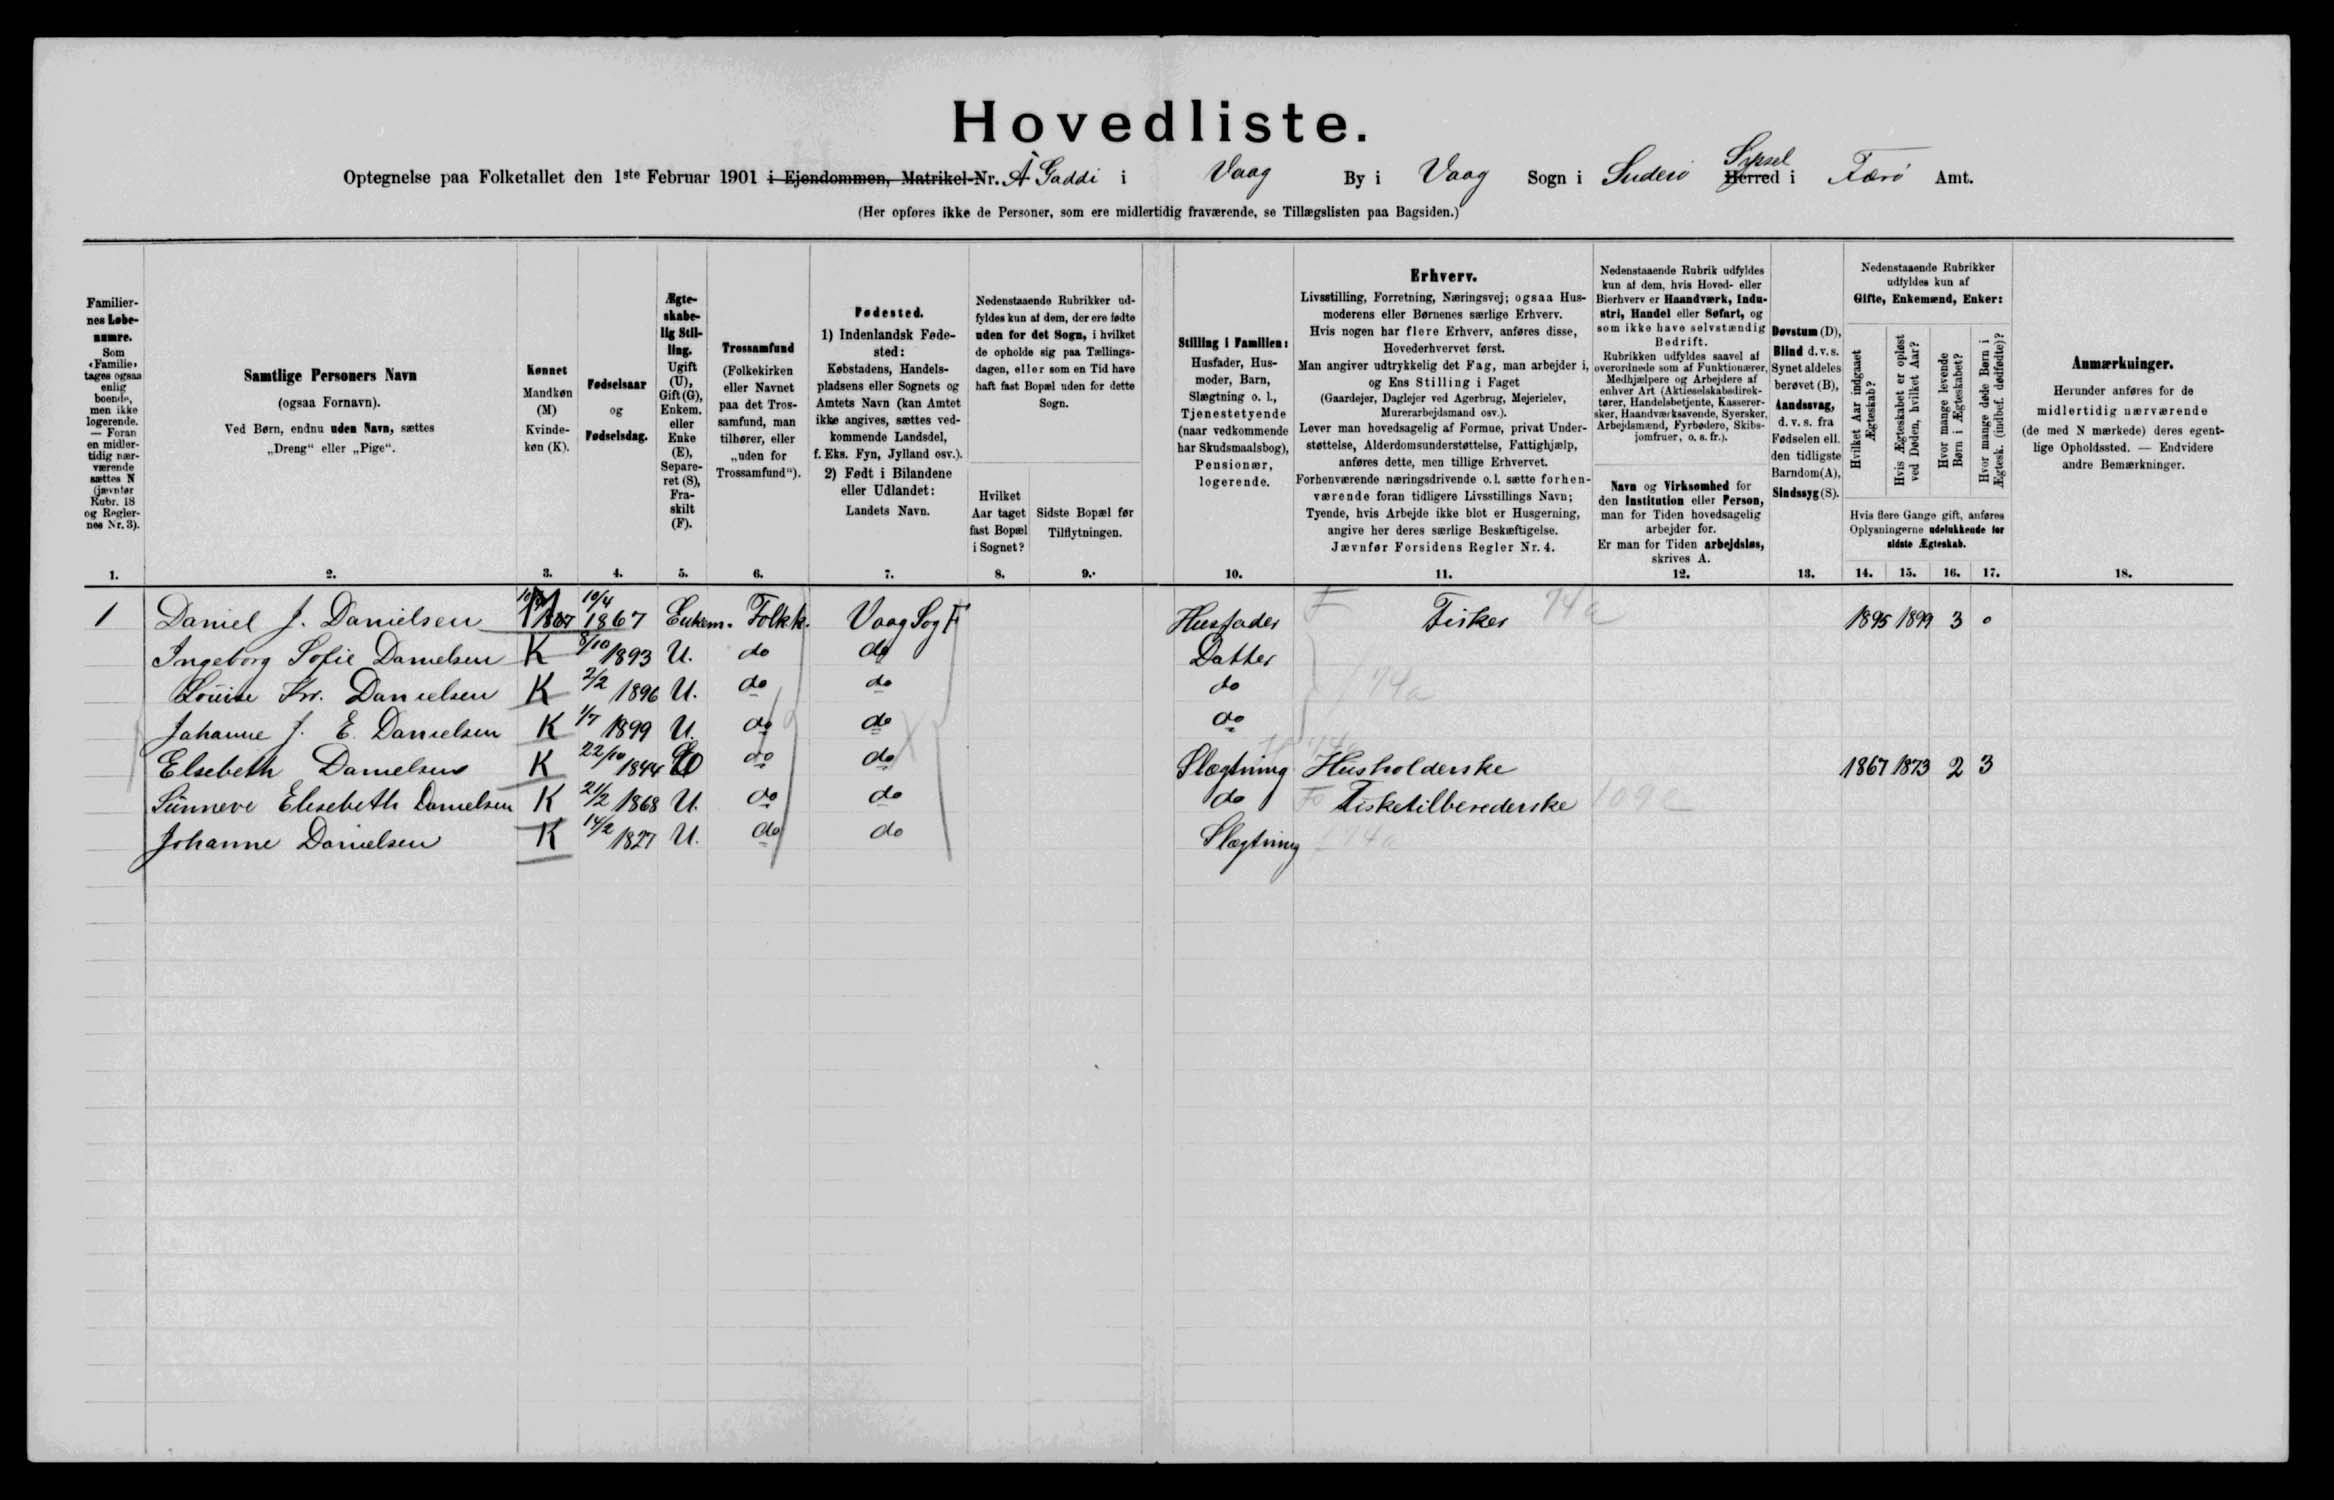 Hovedliste.
Optegnelse paa Folketallet den 1ste Februar 1901 i Ejendommen, Matrikel-Nr. Á Gaddi i Vaag By i Vaag Sogn i Suderø Herred Syssel i Færø Amt.
(Her opføres ikke de Personer, som ere midlertidig fraværende, se Tillægslisten paa Bagsiden.)
Familier-
nes Løbe-
numre.
Som
«Familie»
tages ogsaa
enlig
boende,
men ikke
logerende.
— Foran
en midler-
tidig nær-
værende
sættes N
(jævnfør
Rubr. 18
og Regler-
nes Nr. 3).
1.
Samtlige Personers Navn
(ogsaa Fornavn).
Ved Børn, endnu uden Navn, sættes
„Dreng“ eller „Pige“.
2.
Kønnet
Mandkøn
(M)
Kvinde-
køn (K).
3.
Fødselsaar
og
Fødselsdag.
4.
Ægte-
skabe-
lig Stil-
ling.
Ugift
(U),
Gift (G),
Enkem.
eller
Enke
(E),
Separe-
ret (S),
Fra-
skilt
(F).
5.
Trossamfund
(Folkekirken
eller Navnet
paa det Tros-
samfund, man
tilhører, eller
„uden for
Trossamfund“).
6.
Fødested.
1) Indenlandsk Føde-
sted:
Købstadens, Handels-
pladsens eller Sognets og
Amtets Navn (kan Amtet
ikke angives, sættes ved-
kommende Landsdel,
f. Eks. Fyn, Jylland osv.).
2) Født i Bilandene
eller Udlandet:
Landets Navn.
7.
Nedenstaaende Rubrikker ud-
fyldes kun af dem, der ere fødte
uden for det Sogn, i hvilket
de opholde sig paa Tællings-
dagen, eller som en Tid have
haft fast Bopæl uden for dette
Sogn.
Hvilket
Aar taget
fast Bopæl
i Sognet?
8.
Sidste Bopæl før
Tilflytningen.
9.
Stilling i Familien:
Husfader, Hus-
moder, Barn,
Slægtning o. l.,
Tjenestetyende
(naar vedkommende
har Skudsmaalsbog),
Pensionær,
logerende.
10.
Erhverv.
Livsstilling, Forretning, Næringsvej; ogsaa Hus-
moderens eller Børnenes særlige Erhverv.
Hvis nogen har flere Erhverv, anføres disse,
Hovederhvervet først.
Man angiver udtrykkelig det Fag, man arbejder i,
og Ens Stilling i Faget
(Gaardejer, Daglejer ved Agerbrug, Mejerielev,
Murerarbejdsmand osv.).
Lever man hovedsagelig af Formue, privat Under-
støttelse, Alderdomsunderstøttelse, Fattighjælp,
anføres dette, men tillige Erhvervet.
Forhenværende næringsdrivende o. l. sætte forhen-
værende foran tidligere Livsstillings Navn;
Tyende, hvis Arbejde ikke blot er Husgerning,
angive her deres særlige Beskæftigelse.
Jævnfør Forsidens Regler Nr. 4.
11.
Nedenstaaende Rubrik udfyldes
kun af dem, hvis Hoved- eller
Bierhverv er Haandværk, Indu-
stri, Handel eller Søfart, og
som ikke have selvstændig
Bedrift.
Rubrikken udfyldes saavel af
overordnede som af Funktionærer,
Medhjælpere og Arbejdere af
enhver Art (Aktieselskabedirek-
tører, Handelsbetjente, Kasserer-
sker, Haandværkssvende, Syersker,
Arbejdsmænd, Fyrbødere, Skibs-
jomfruer, o. s. fr.).
Navn og Virksomhed for
den Institution eller Person,
man for Tiden hovedsagelig
arbejder for.
Er man for Tiden arbejdsløs,
skrives A.
12.
Døvstum (D),
Blind d. v. s.
Synet aldeles
berøvet (B),
Aandssvag,
d. v. s. fra
Fødselen ell.
den tidligste
Barndom (A),
Sindssyg (S).
13.
Nedenstaaende Rubrikker
udfyldes kun af
Gifte, Enkemænd, Enker:
Hvilket Aar indgaaet
Ægteskab?
Hvis Ægteskabet er opløst
ved Døden, hvilket Aar?
Hvor mange levende
Børn i Ægteskabet?
Hvor mange døde Børn i
Ægtesk. (indbef. dødfødte)?
Hvis flere Gange gift, anføres
Oplysningerne udelukkende for
sidste Ægteskab.
14. 15. 16. 17.
Anmærkninger.
Herunder anføres for de
midlertidig nærværende
(de med N mærkede) deres egent-
lige Opholdssted. — Endvidere
andre Bemærkninger.
18.
1 Daniel J. Danielsen M 10/4 1867 Enkem. Folkk. Vaag Sog F Husfader F Fisker 74a 1895 1899 3 0
Ingeborg Sofie Danielsen K 8/10 1893 U. do do Datter
Louise Kr. Danielsen K 2/2 1896 U. do do do 74a
Johanne J. E. Danielsen K 1/7 1899 U. do do do
Elsebeth Danielsen K 22/10 1844 do do Slægtning Husholderske 1867 1873 2 3
Sünneve Elisebeth Danielsen K 21/2 1868 U. do do do Fo Fisketilberederske 109c
Johanne Danielsen K 14/2 1827 U. do do Slægtning 74a